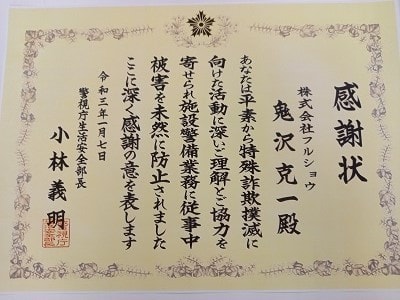 感謝状
株式会社フルショウ
鬼沢克一殿
あなたは平素から特殊詐欺撲滅に
向けた活動に深いご理解とご協力を
寄せられ施設警備業務に従事中
被害を未然に防止されました
ここに深く感謝の意を表します
令和三年一月七日
警視庁生活安全部長
小林義明